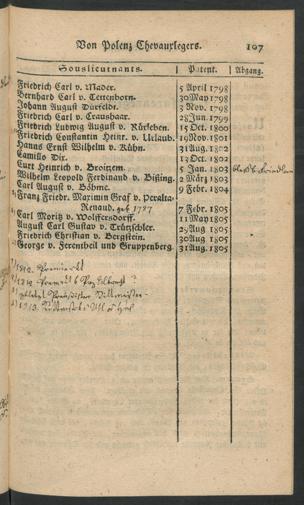 Von Polenz Chevauxlegers. 107
Souslieutnants. | Patent. | Abgang.
Friedrich Carl v. Mader. 5 April 1798
Bernhard Carl v. Tettenborn. 30 May 1798
Johann August Dürfeldt. 3 Nov. 1798
Friedrich Carl v. Craushaar. 28 Jun. 1799
Friedrich Ludwig August v. Rüxleben. 15 Oct. 1800
Friedrich Constantin Heinr. v. Urlaub. 19 Nov. 1801
Hanns Ernst Wilhelm v. Kühn. 31 Aug. 1802
Camillo Dir. 13 Oct. 1802
Curt Heinrich v. Broizem. 5 Jan. 1803
Wilhelm Leopold Ferdinand v. Bißing. 2 März 1803
Carl August v. Böhme. 9 Febr. 1804
Franz Friedr. Maximin Graf v. Peralta-
Renaud. geb. 1787 7 Febr. 1805
Carl Moritz v. Wolffersdorff. 11 May 1805
August Carl Gustav v. Trützschler. 29 Aug 1805
Friedrich Christian v. Bergstein. 30 Aug 1805
George v. Ferentheil und Gruppenberg. 31 Aug. 1805